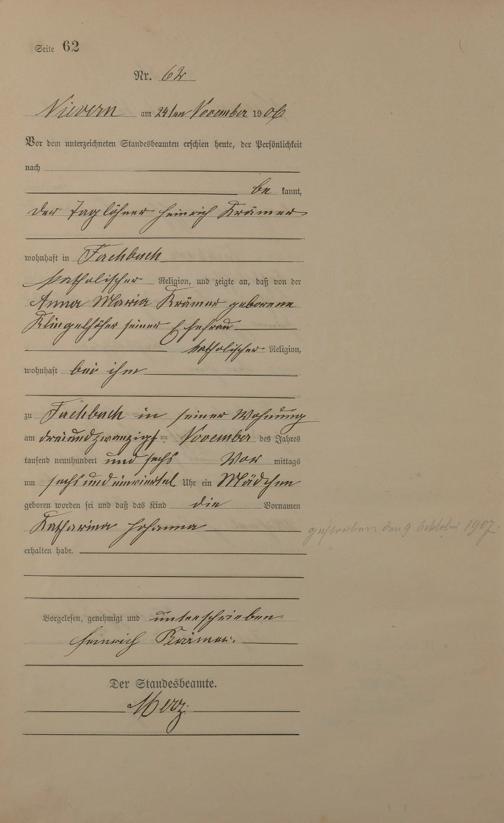 Seite 62
Nr. 62
Nievern am 24ten November 1906
Vor dem unterzeichneten Standesbeamten erschien heute, der Persönlichkeit
nach
be kannt,
der Taglöhner Heinrich Krämer
wohnhaft in Fachbach
katholischer Religion, und zeigte an, daß von der
Anna Maria Krämer geborene
Klingelhöfer seiner Ehefrau
katholischer Religion,
wohnhaft bei ihm
zu Fachbach in seiner Wohnung
am dreiundzwanzigsten November des Jahres
tausend neunhundert und sechs Vor mittags
um sechs und einviertel Uhr ein Mädchen
geboren worden sei und daß das Kind die Vornamen
Katharina Johanna
gestorben den 9 Oktober 1907.
erhalten habe.
Vorgelesen, genehmigt und unterschrieben
Heinrich Krämer.
Der Standesbeamte.
Merz